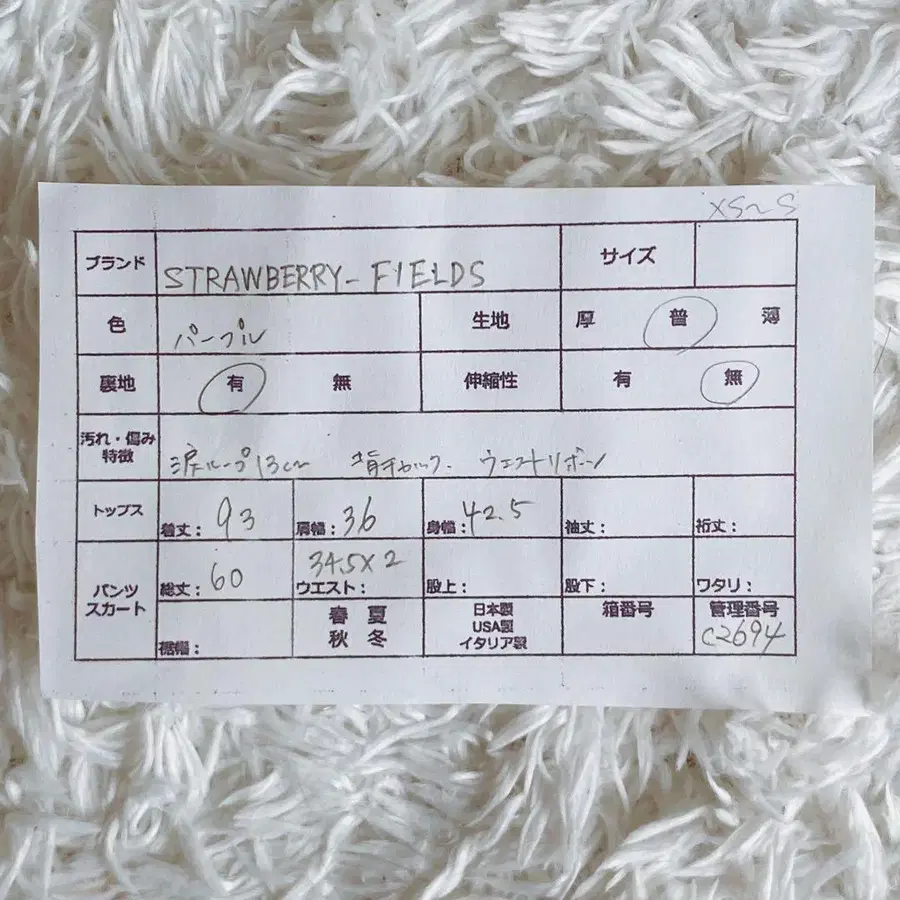 XS〜S
ブランド STRAWBERRY-FIELDS サイズ
色 パープル 生地 厚 普 薄
裏地 有 無 伸縮性 有 無
汚れ・傷み
特徴 涙ループ13cm 背チャック. ウエストリボン
トップス 着丈:93 肩幅:36 身幅:42.5 袖丈: 裄丈:
パンツ
スカート 総丈:60 ウエスト:34.5×2 股上: 股下: ワタリ:
裾幅: 春 夏
秋 冬
日本製
USA製
イタリア製
箱番号
管理番号
C2694